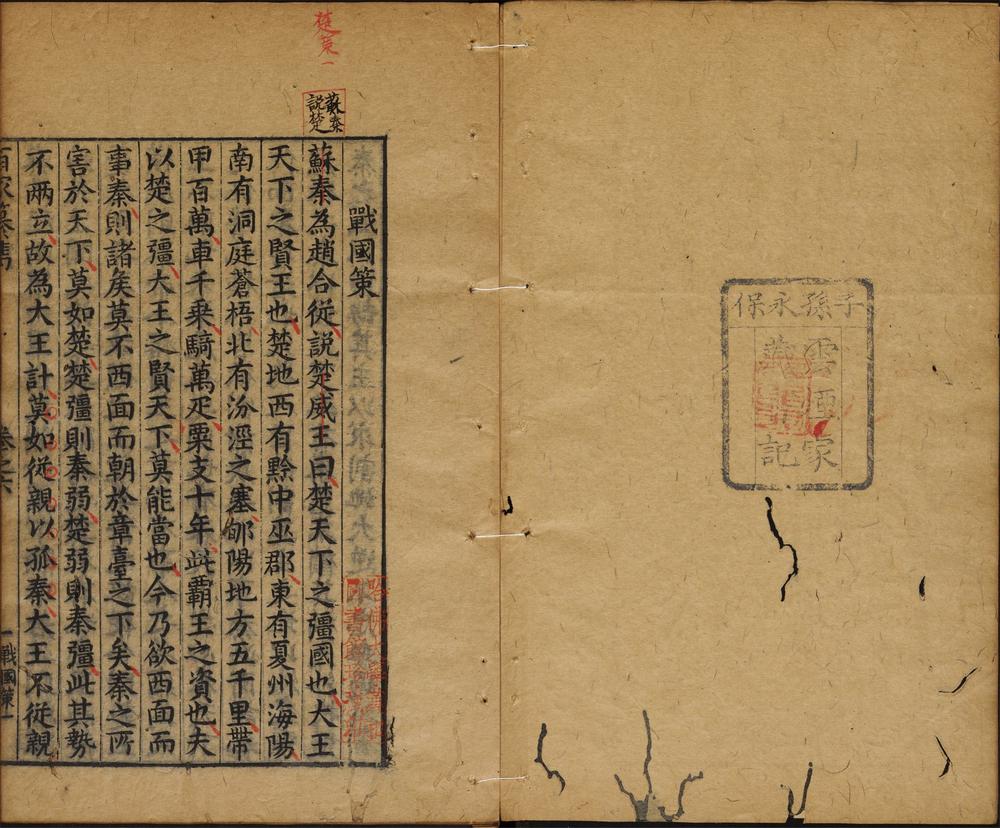 子孫永保
雲煙家
藏書記
楚策一
蘇秦
說楚
戰國策
蘇秦為趙合從說楚威王曰楚天下之彊國也大王
天下之賢王也楚地西有黔中巫郡東有夏州海陽
南有洞庭蒼梧北有汾涇之塞郇陽地方五千里帶
甲百萬車千乘騎萬疋粟支十年此霸王之資也夫
以楚之彊大王之賢天下莫能當也今乃欲西面而
事秦則諸矦莫不西面而朝於章臺之下矣秦之所
害於天下莫如楚楚彊則秦弱楚弱則秦彊此其勢
不兩立故為大王計莫如從親以孤秦大王不從親
卷之六
戰國策一